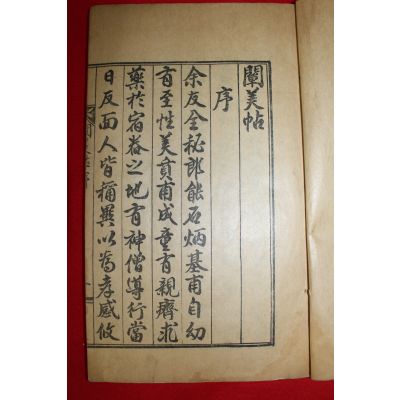 闡美帖
序
余友全秘郎能石炳基甫自幼
有至性美質甫成童有親癠求
藥於宿眷之地有神僧導行當
日反面人皆稱異以爲孝感攸